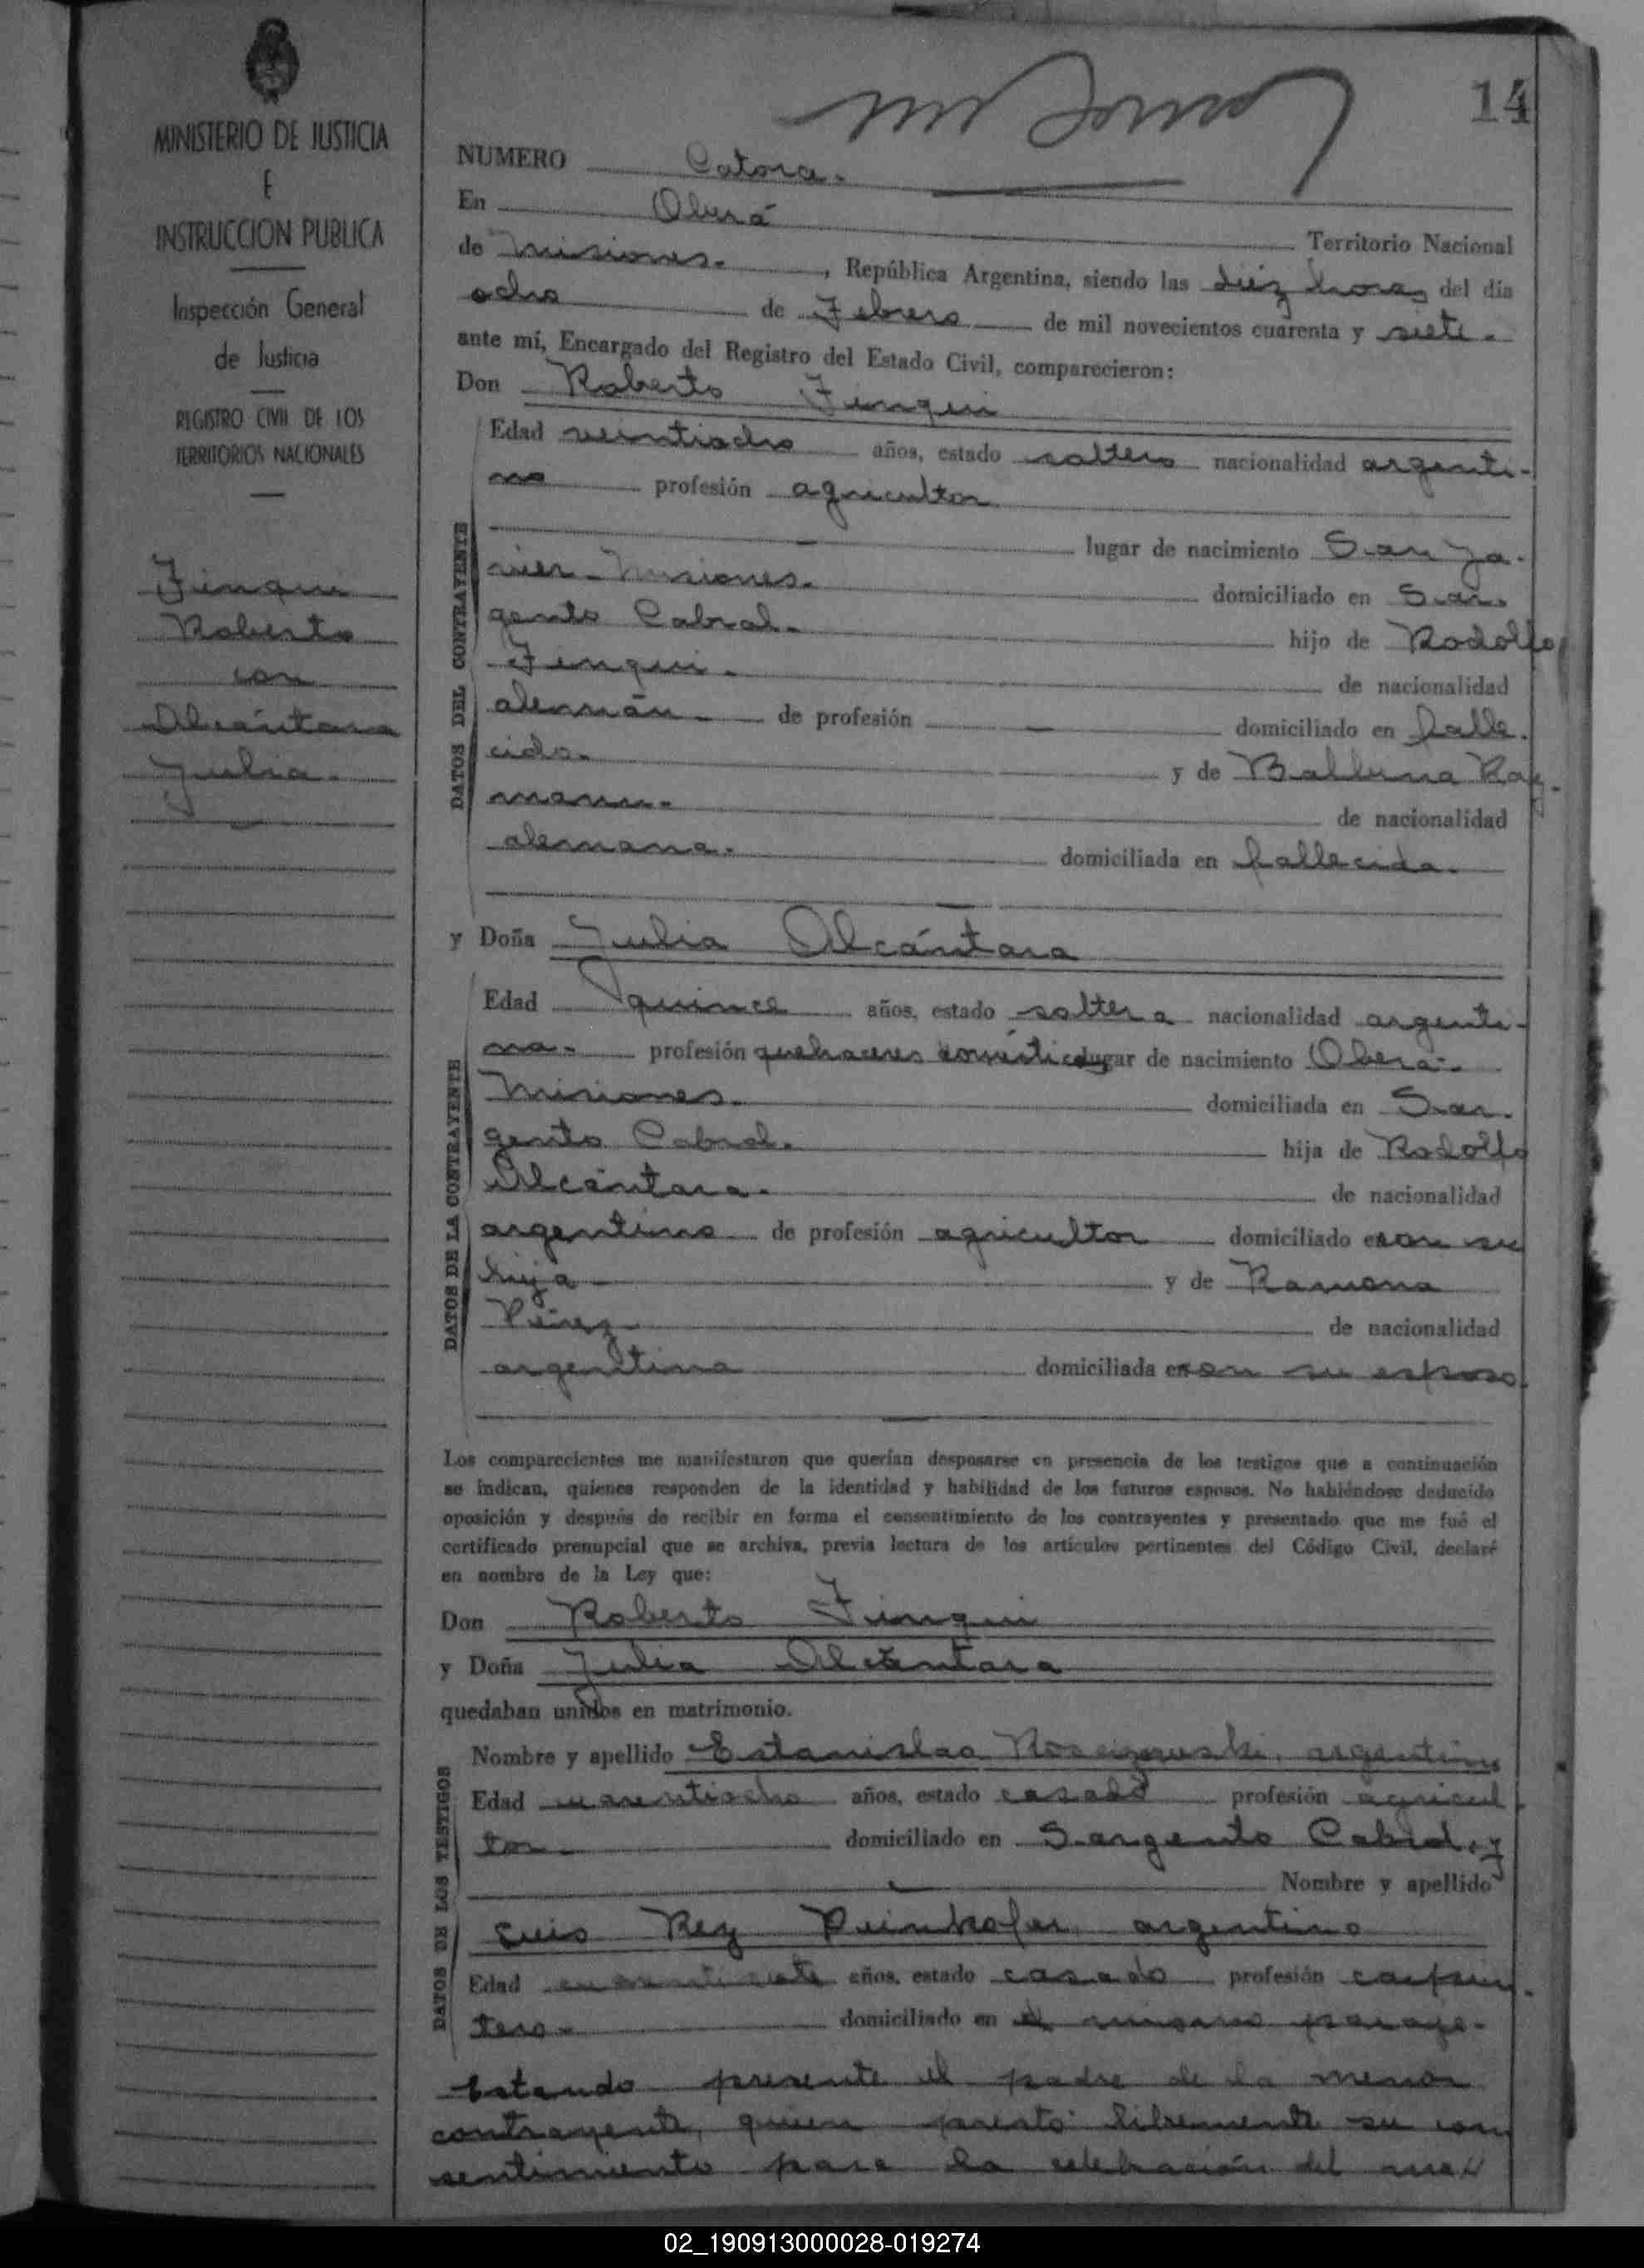 14
MINISTERIO DE JUSTICIA
E
INSTRUCCION PUBLICA
Inspección General
de Justicia
REGISTRO CIVIL DE LOS
TERRITORIOS NACIONALES
Finqui
Roberto
con
Alcántara
Julia.
NUMERO Catorce.
En Oberá Territorio Nacional
de Misiones., República Argentina, siendo las diez horas del día
ocho de Febrero de mil novecientos cuarenta y siete.
ante mí, Encargado del Registro del Estado Civil, comparecieron:
Don Roberto Finqui
DATOS DEL CONTRAYENTE
Edad veintiocho años, estado soltero nacionalidad argenti-
no profesión agricultor
lugar de nacimiento San Ja-
vier - Misiones. domiciliado en Sar-
gento Cabral. hijo de Rodolfo
Finqui. de nacionalidad
alemán. de profesión domiciliado en falle-
cido. y de
de nacionalidad
alemana. domiciliada en fallecida.
y Doña Julia Alcántara
DATOS DE LA CONTRAYENTE
Edad quince años, estado soltera nacionalidad argenti-
na. profesión quehaceres domésticos lugar de nacimiento Oberá-
Misiones. domiciliada en Sar-
gento Cabral. hija de Rodolfo
Alcántara. de nacionalidad
argentino de profesión agricultor domiciliado con su
hija y de Ramona
Pérez. de nacionalidad
argentina domiciliada con su esposo.
Los comparecientes me manifestaron que querían desposarse en presencia de los testigos que a continuación
se indican, quienes responden de la identidad y habilidad de los futuros esposos. No habiéndose deducido
oposición y después de recibir en forma el consentimiento de los contrayentes y presentado que me fué el
certificado prenupcial que se archiva, previa lectura de los artículos pertinentes del Código Civil, declaré
en nombre de la Ley que:
Don Roberto Finqui
y Doña Julia Alcántara
quedaban unidos en matrimonio.
DATOS DE LOS TESTIGOS
Nombre y apellido Estanislao argentino
Edad cuarentiocho años, estado casado profesión agricul-
tor. domiciliado en Sargento Cabral, y
Nombre y apellido
Luis Rey argentino
Edad cuarentisiete años, estado casado profesión carpin-
tero. domiciliado en el mismo paraje.
Estando presente el padre de la menor
contrayente, quien prestó libremente su con
sentimiento para la celebración del
02_190913000028-019274